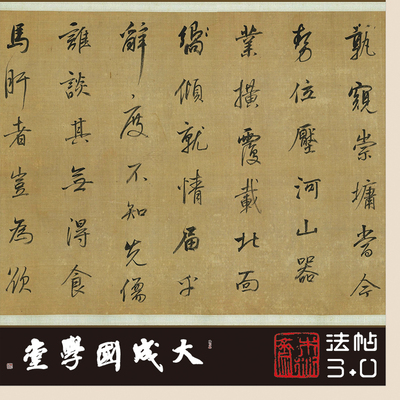 窺崇墉當今
勢位壓河山器
業橫覆載北面
傾就情届乎
辭度不知先儒
誰談其無得食
馬肝者豈為欲
大成國學堂
法帖
3.0